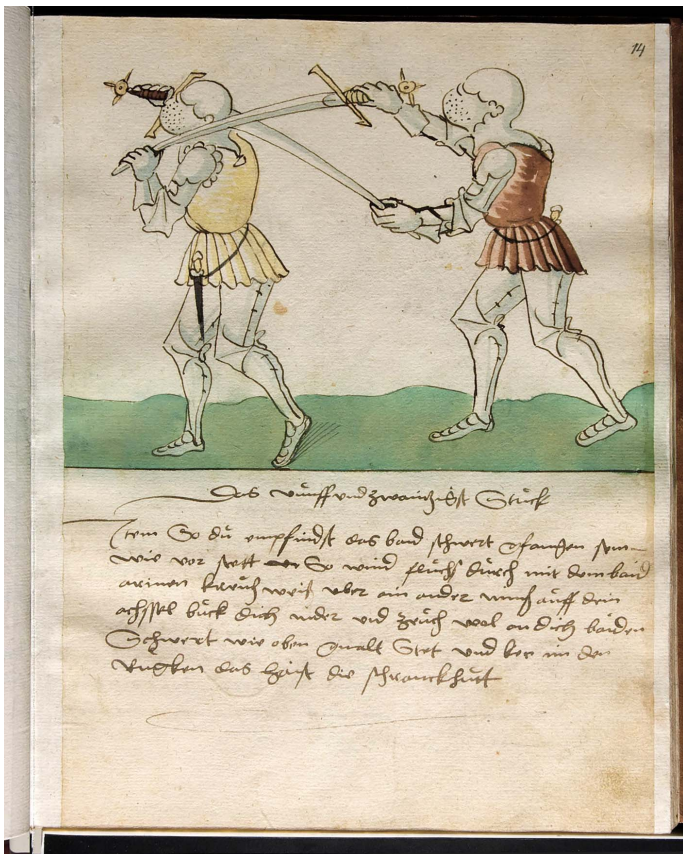 14
Das vünff und zwaintzigist Stuck
Item So du empfindst das baid schwert gfangen sein
wie vor stett So wind fluchs durch mit dem baid
armen kreutzweiß uber ain ander auff dein
achssel buck dich nider und zeuch wol an dich baiden
Schwert wie oben gmalt Stet und ker im den
Rugken das haist die schranckhut